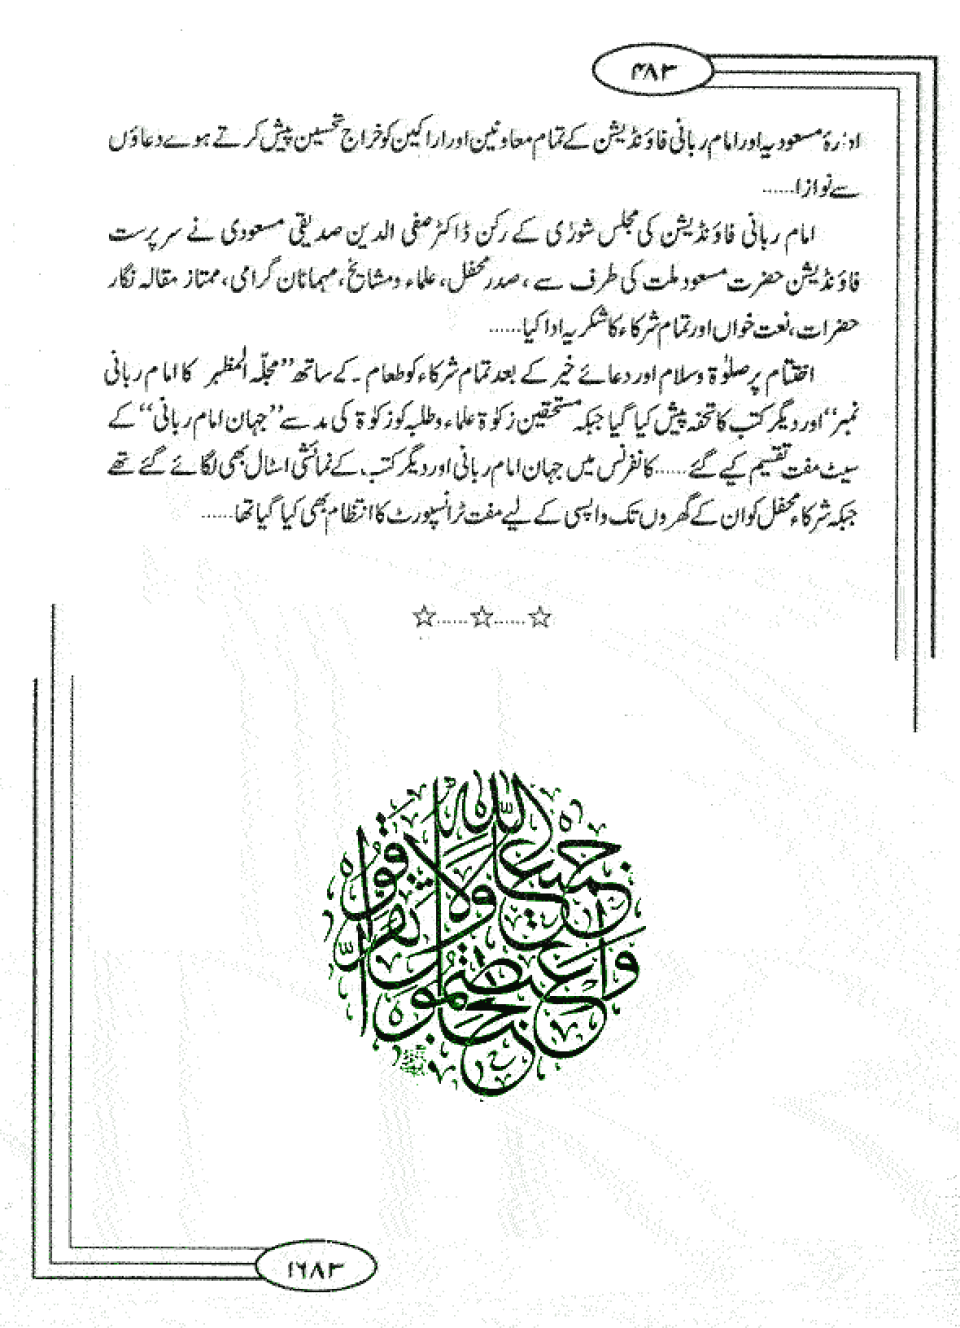 ۴۸۳
ادارۂ مسعودیہ اور امام ربانی فاؤنڈیشن کے تمام معاونین اور اراکین کو خراج تحسین پیش کرتے ہوے دعاؤں
سے نوازا......
امام ربانی فاؤنڈیشن کی مجلس شورٰی کے رکن ڈاکٹر صفی الدین صدیقی مسعودی نے سرپرست
فاؤنڈیشن حضرت مسعود ملت کی طرف سے ، صدر محفل، علماء ومشایخ، مہمانان گرامی، ممتاز مقالہ نگار
حضرات، نعت خواں اور تمام شرکاء کا شکریہ ادا کیا......
اختتام پر صلوٰۃ وسلام اور دعائے خیر کے بعد تمام شرکاء کو طعام ۔ کے ساتھ ’’مجلّہ المظہر کا امام ربانی
نمبر‘‘ اور دیگر کتب کا تحفہ پیش کیا گیا جبکہ مستحقین زکوٰۃ علماء وطلبہ کو زکوٰۃ کی مد سے ’’جہان امام ربانی‘‘ کے
سیٹ مفت تقسیم کیے گئے ...... کانفرنس میں جہان امام ربانی اور دیگر کتب کے نمائشی اسٹال بھی لگائے گئے تھے
جبکہ شرکاء محفل کو ان کے گھروں تک واپسی کے لیے مفت ٹرانسپورٹ کا انتظام بھی کیا گیا تھا......
☆......☆......☆
واعتصموا بحبل الله جميعا ولا تفرقوا
۱۶۸۳